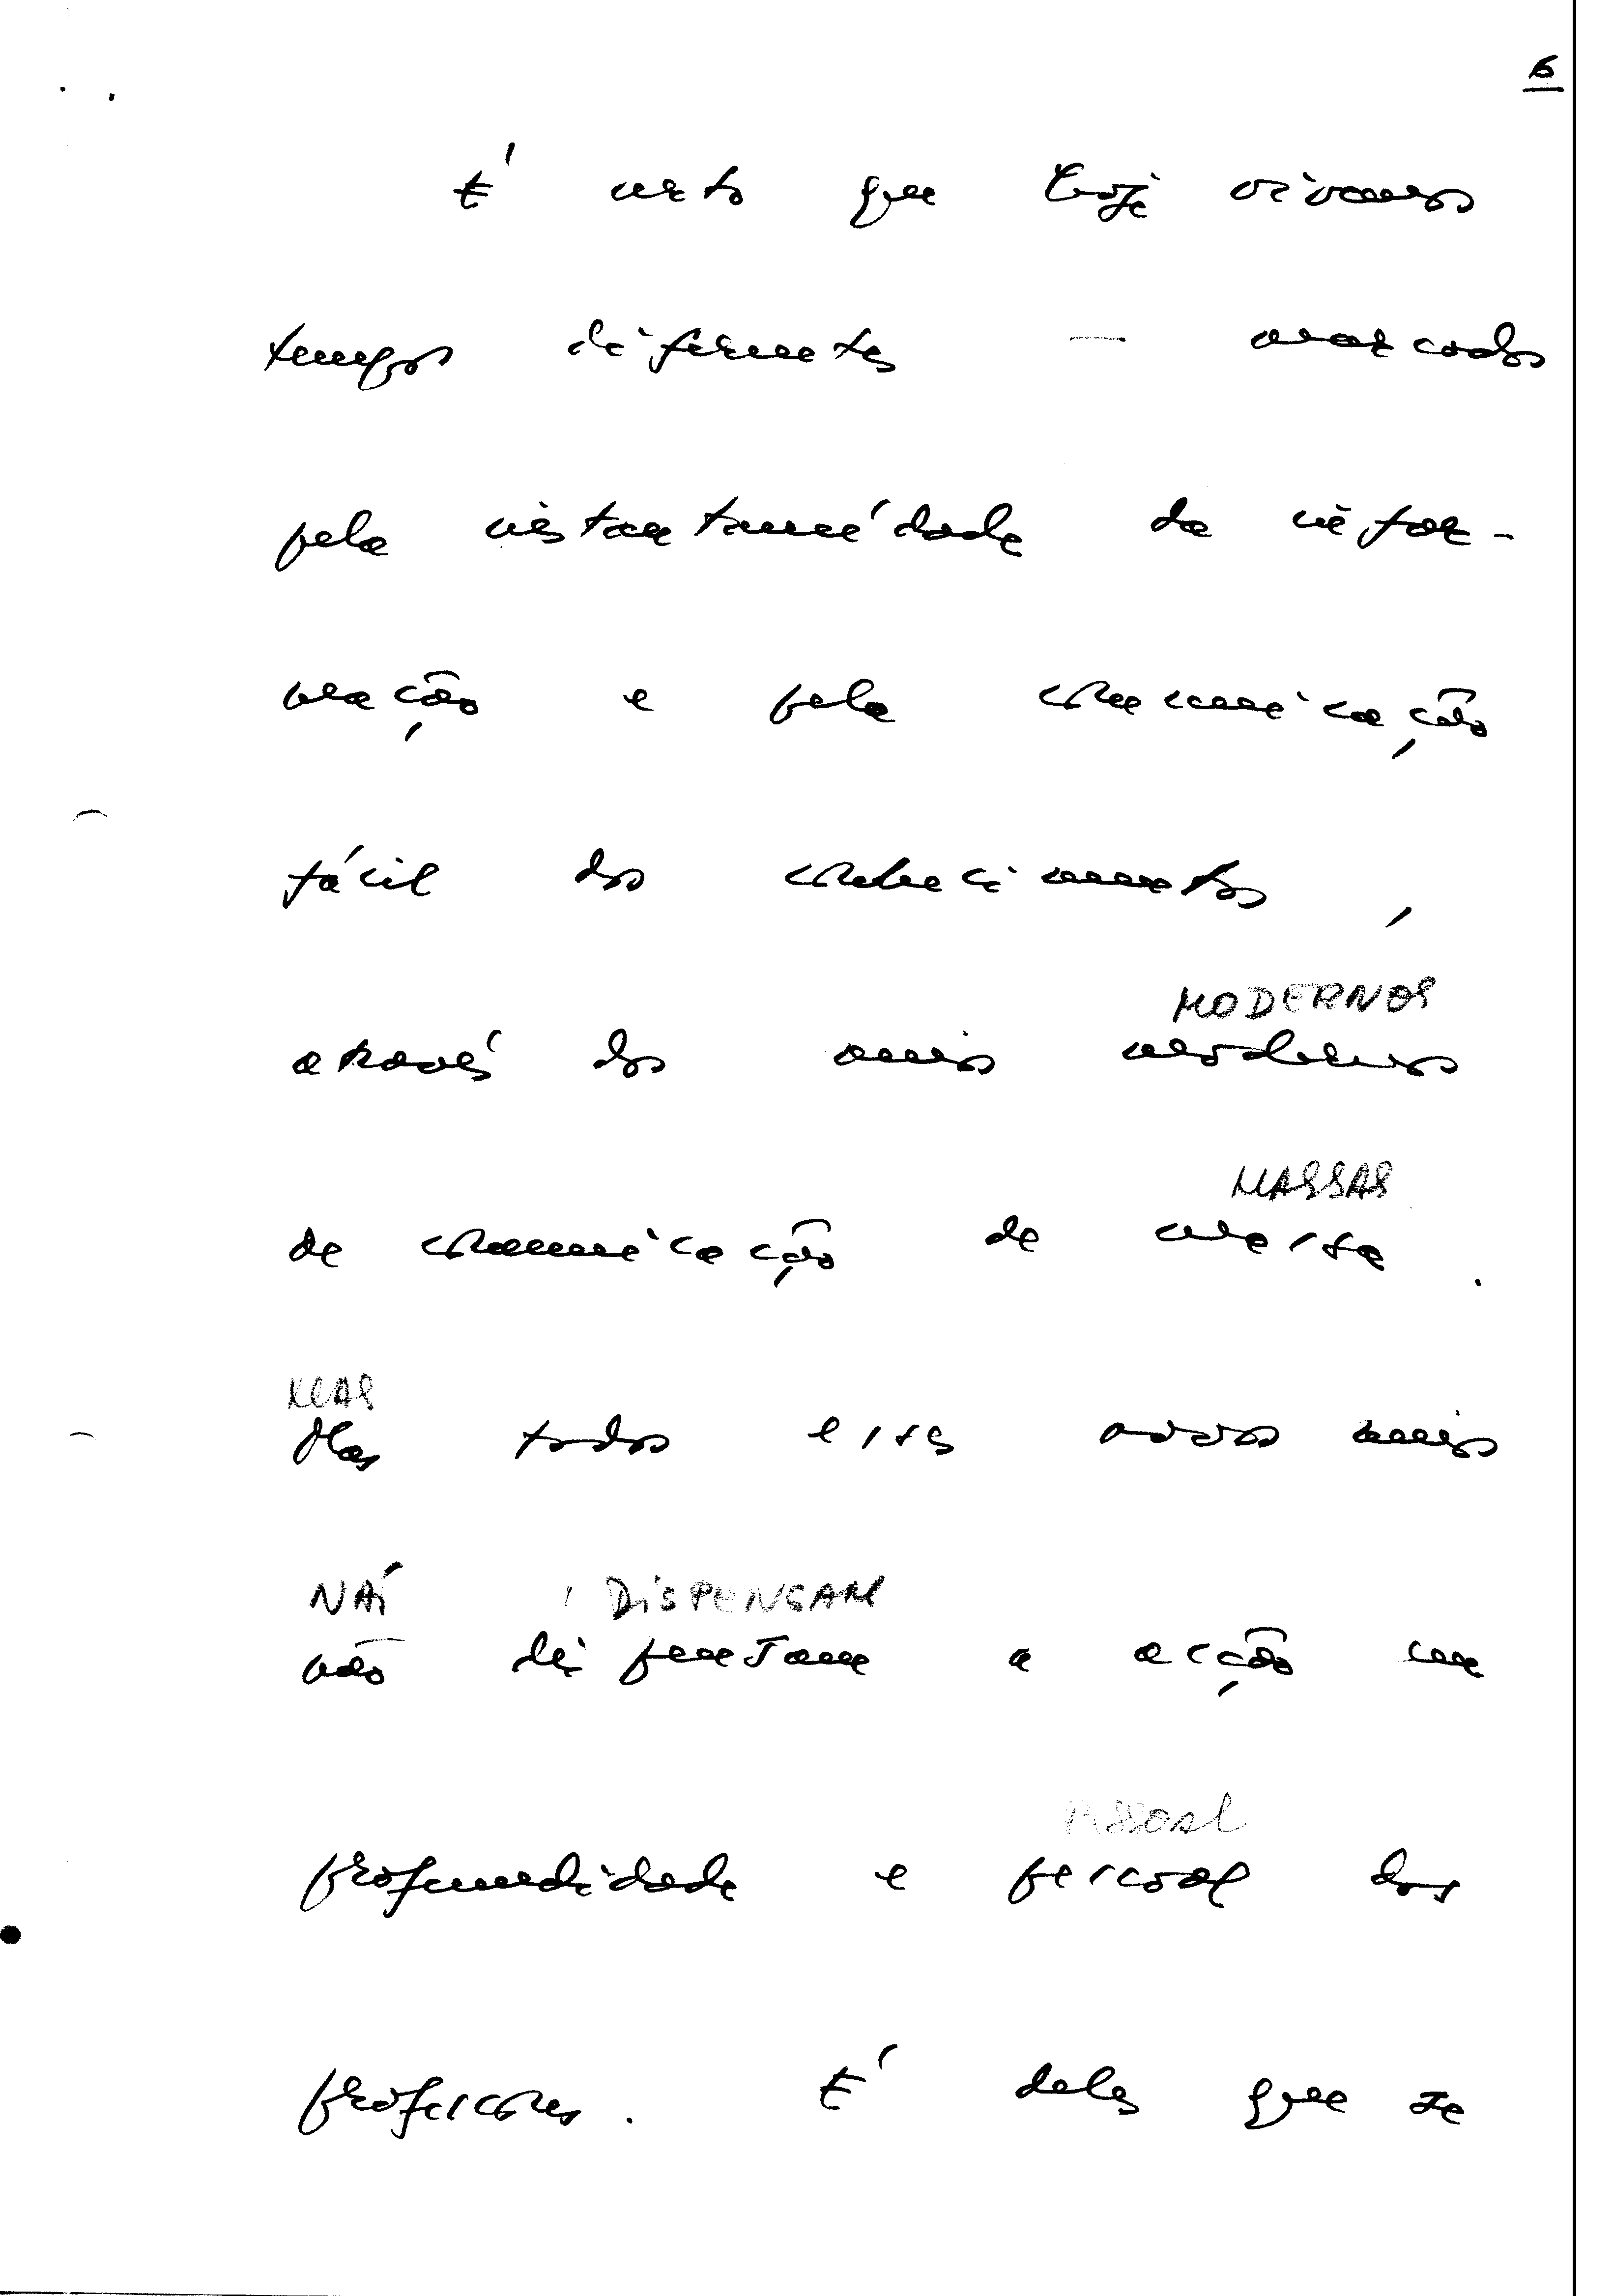 6
É certo que hoje vivemos
tempos diferentes — marcados
pela instantaneidade da infor-
mação e pela comunicação
fácil dos conhecimentos,
MODERNOS
através dos meios modernos
MASSAS
de comunicação de massa.
MAS
Mas todos estes novos meios
NÃO DISPENSAM
não dispensam a acção em
PESSOAL
profundidade e pessoal dos
professores. É deles que se